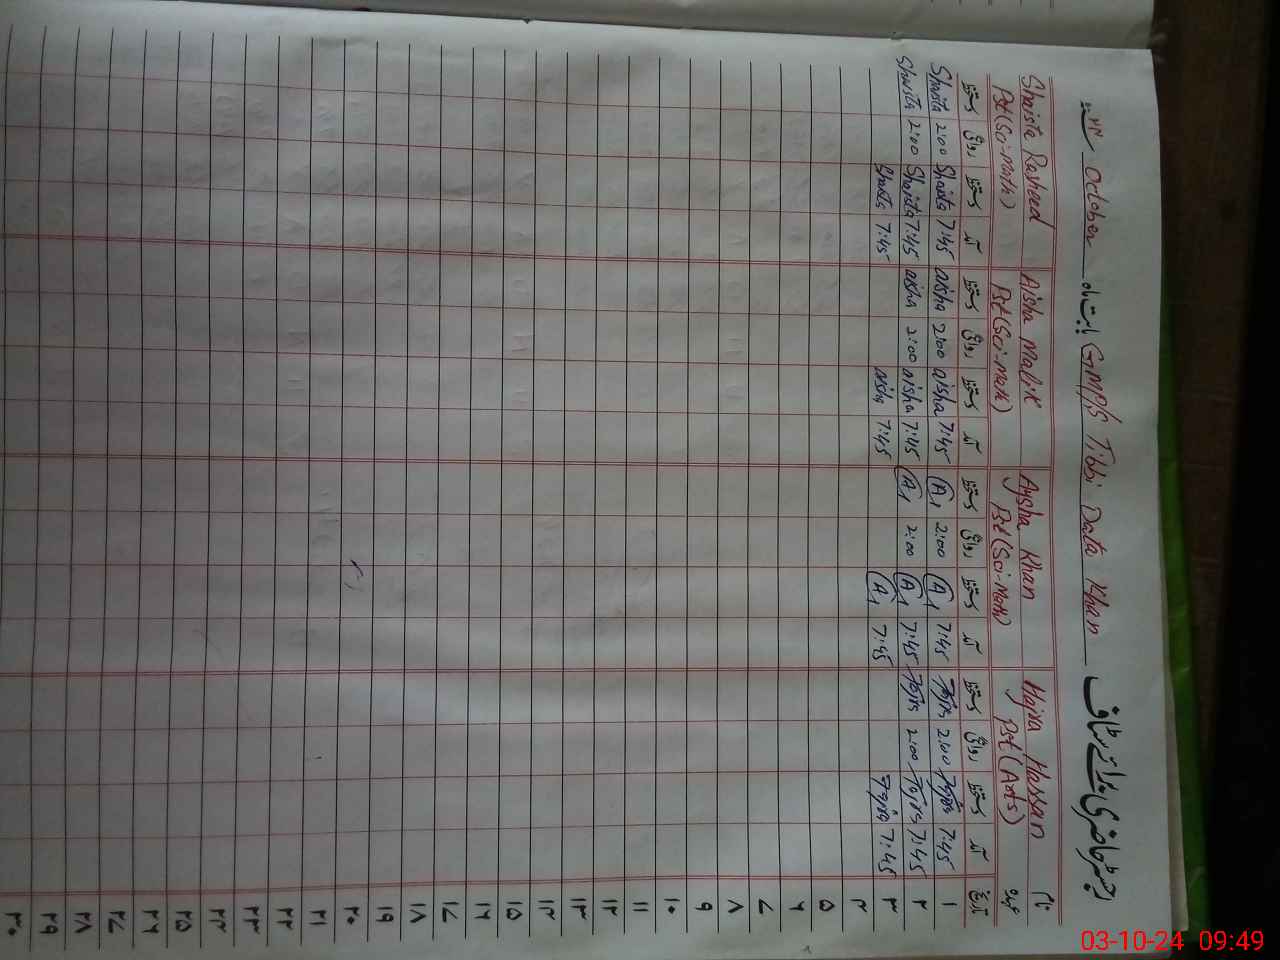 رجسٹر حاضری برائے سٹاف GMP/S Tibbi Data Khan بابت ماہ October ۲۴
نام Hajra Hassan Aysha Khan Aisha Malik Shaista Rasheed
عہدہ Pst (Arts) Pst (Sci-math) Pst (Sci-math) Pst (Sci-math)
تاریخ آمد دستخط روانگی دستخط آمد دستخط روانگی دستخط آمد دستخط روانگی دستخط آمد دستخط روانگی دستخط
۱ 7:45 2:00 7:45 A1 2:00 A1 7:45 aisha 2:00 aisha 7:45 Shaista 2:00 Shaista
۲ 7:45 2:00 7:45 A1 2:00 A1 7:45 aisha 2:00 aisha 7:45 Shaista 2:00 Shaista
۳ 7:45 7:45 A1 7:45 aisha 7:45 Shaista
۴
۵
۶
۷
۸
۹
۱۰
۱۱
۱۲
۱۳
۱۴
۱۵
۱۶
۱۷
۱۸
۱۹
۲۰
۲۱
۲۲
۲۳
۲۴
۲۵
۲۶
۲۷
۲۸
۲۹
۳۰
03-10-24 09:49